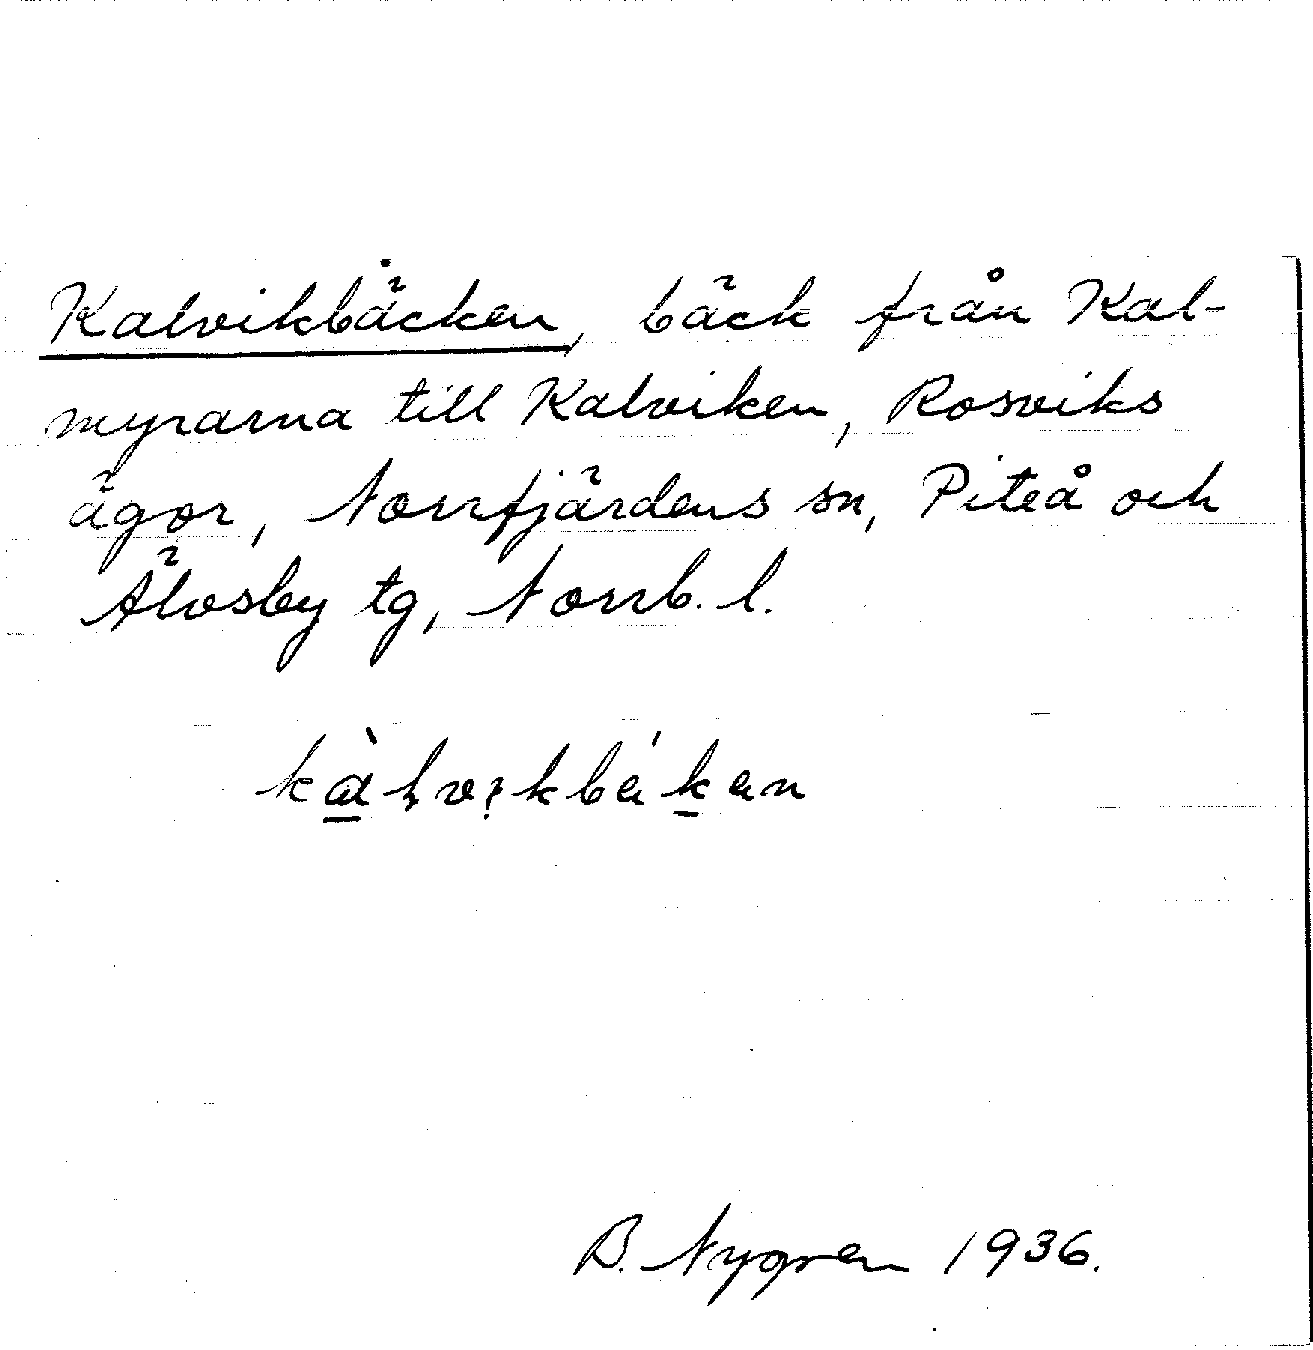 Kalvikbäcken, bäck från Kal-
myrarna till Kalviken, Rosviks
ägor, Norrfjärdens sn, Piteå och
Älvsby tg, Norrb. l.
B. Nygren 1936.